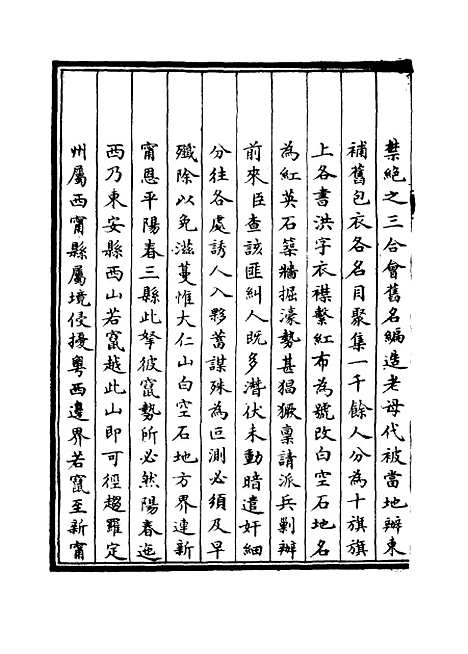 禁絶之三合會舊名編造老母代被當地辦東
補舊包衣各名目聚集一千餘人分為十旗旗
上各書洪字衣襟繫紅布為號改白空石地名
為紅英石築牆掘濠勢甚猖獗稟請派兵剿辦
前來臣查該匪糾人既多潛伏未動暗遣奸細
分往各處誘人入夥蓄謀殊為叵測必須及早
殲除以免滋蔓惟大仁山白空石地方界連新
甯恩平陽春三縣此拏彼竄勢所必然陽春迤
西乃東安縣西山若竄越此山即可徑趨羅定
州屬西甯縣屬境侵擾粵西邊界若竄至新甯